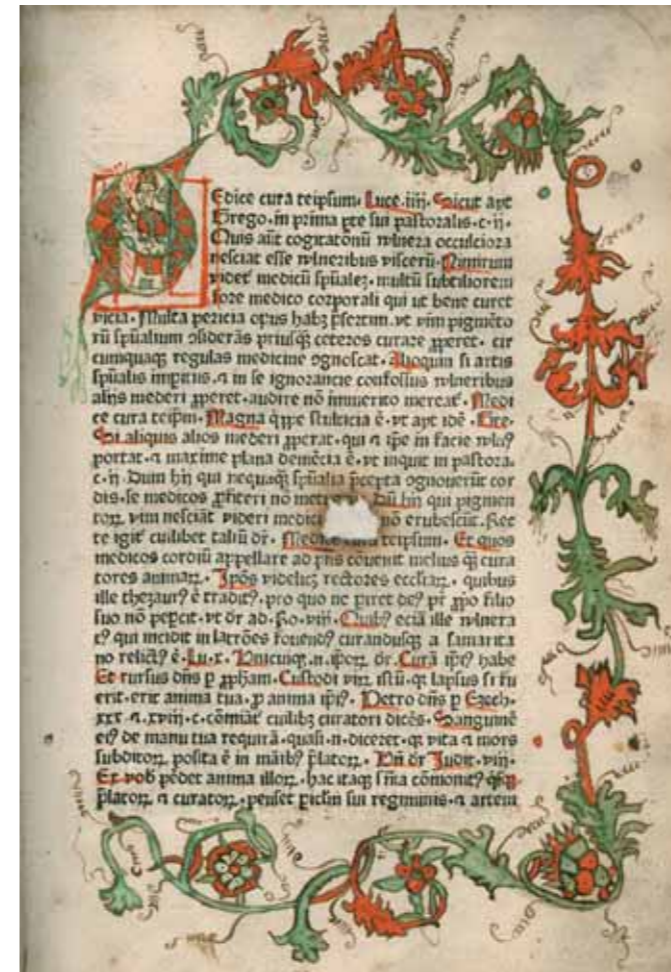 Edice cura teipsum. Luce. iiij. Sicut ayt
Grego. in prima pte sui pastoralis. c. ij.
Quis aūt cogitationū vulnera occulciora
nesciat esse vulneribus viscerū. Nimirum
videt᷑ medicū spūalez. multū subtiliorem
fore medico corporali qui ut bene curet
vicia. Multa pericia opus habꝫ p̄sertim. vt vim pigmēto
rū spūalium ↄsiderās priusꝗ̄ ceteros curare ꝓperet. cir
cumquaqꝫ regulas medicine ↄgnoscat. Alioquin si artis
spūalis impitus. ⁊ in se ignorancie confossus vulneribus
alijs mederi ꝓperet. audire nō immerito mereat᷑. Medi
ce cura teipm̄. Magna ꝗ̄ppe stulticia ē. vt ayt idē
Si aliquis alios mederi ꝓperat. qui ⁊ ip̄e in facie vulnꝰ
portat. ⁊ maxime plana demēcia ē. vt inquit in pastora.
c. ij. Dum hij qui nequaꝗ̄ spūalia p̄cepta ↄgnouerūt cor
dis. se medicos ꝓfiteri nō Dū hij qui pigmen
toꝝ vim nesciāt videri medici nō erubescūt. Rec
te igit᷑ cuilibet taliū dr̄. Medice cura teipsum. Et quos
medicos cordiū appellare ad p̄ns cōuenit melius ꝗ̄ cura
tores animaꝝ. Ip̄os videlicꝫ rectores eccl̄iaꝝ. quibus
ille thezaurꝰ ē traditꝰ. pro quo ne periret deꝰ pr̄ ꝓp̄io filio
suo nō pepcit. vt dr̄ ad. Ro. viij. Quibꝰ eciā ille vulnera
tꝰ qui incidit in latrōes fouendꝰ curandusqꝫ a samarita
no relictꝰ ē. Lu. x. Vnicuiqꝫ. n. ip̄oꝝ dr̄. Curā ip̄iꝰ habe
Et rursus dn̄s ꝑ ꝓph̄am. Custodi viꝝ istū. qꝫ lapsus si fu
erit. erit anima tua. ꝓ anima ip̄iꝰ. Petro dn̄s ꝑ Ezech.
xxx ⁊ xviij. c. cōmiāt᷑ cuilibꝫ curatori dicēs. Sanguinē
eiꝰ de manu tua requirā. quasi. n. diceret. qꝫ vita ⁊ mors
subditoꝝ posita ē in māibꝰ p̄latoꝝ. Vn̄ dr̄ Judit. viij.
Ex vob̄ pēdet anima illoꝝ. hac itaqꝫ sn̄ia cōmonitꝰ
p̄latoꝝ ⁊ curatoꝝ. penset pic̄lm sui regiminis. ⁊ artem